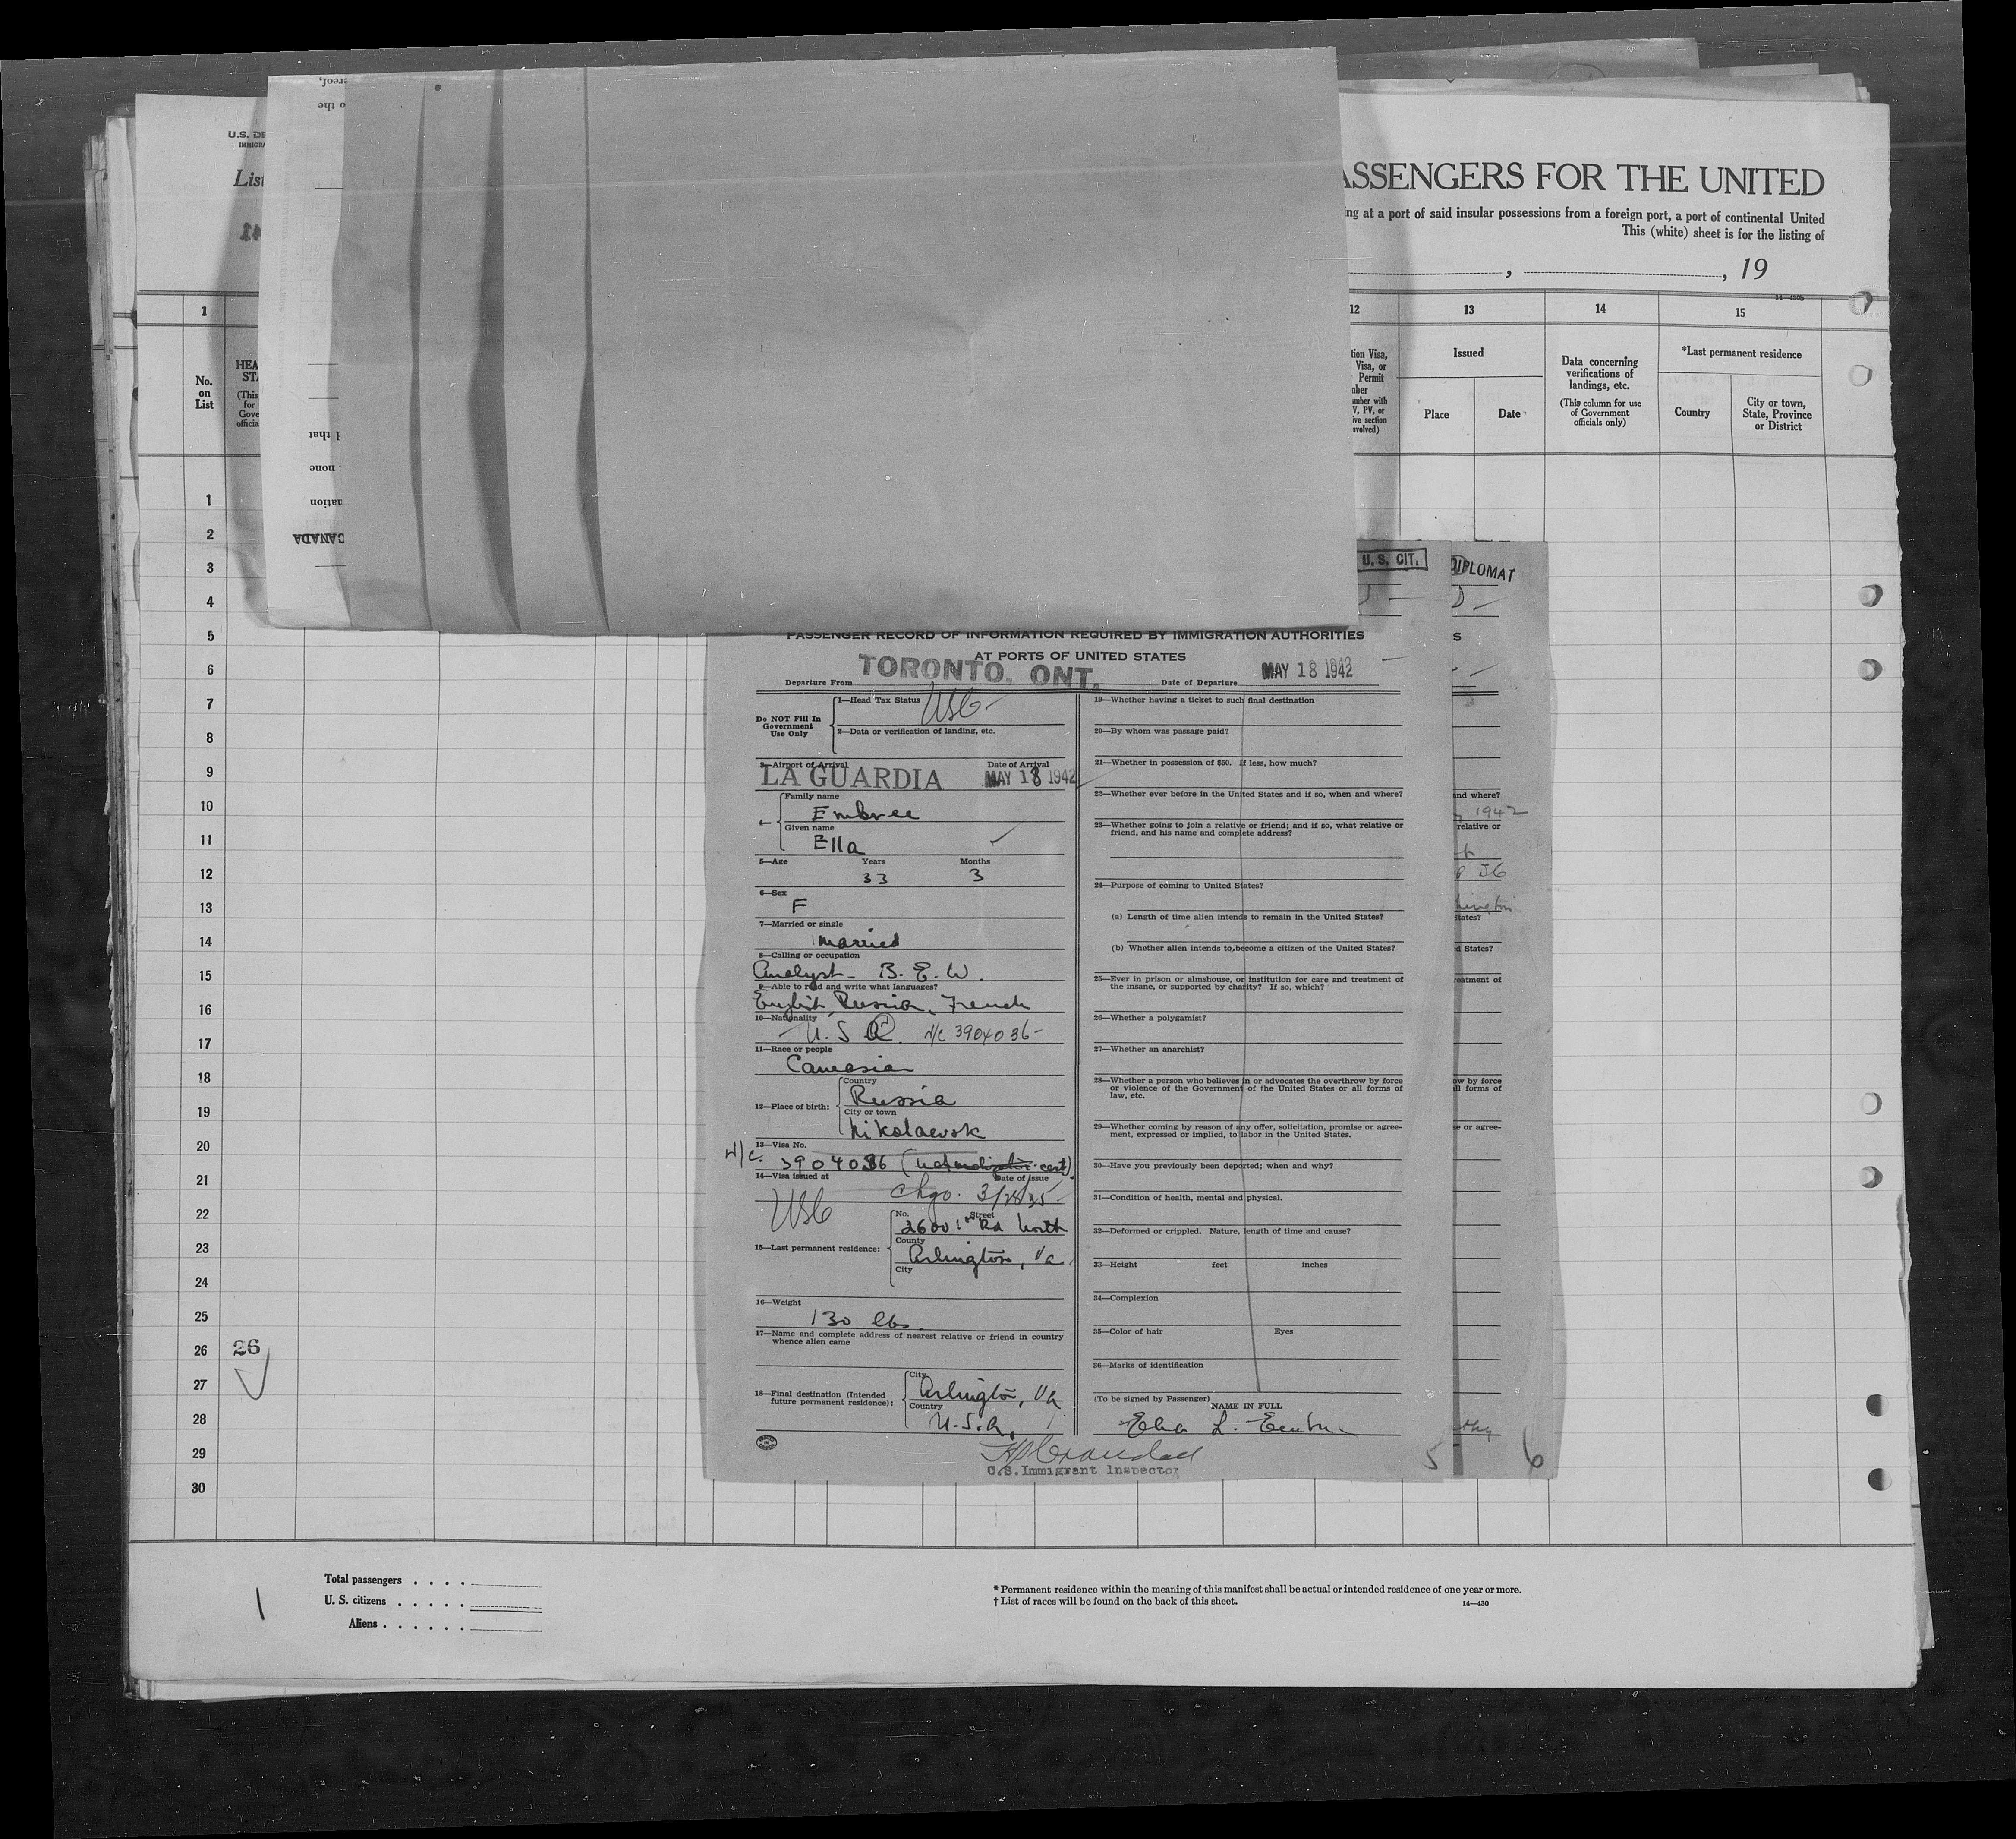 U.S. DE
IMMIGRA
List
ASSENGERS FOR THE UNITED
ing at a port of said insular possessions from a foreign port, a port of continental United
This (white) sheet is for the listing of
, , 19
1
12
13
14
15
No.
on
List
HEA
STA
(This
for
Gove
officia
tion Visa,
Visa, or
Permit
nber
umber with
V, PV, or
ive section
nvolved)
Issued
Place
Date
Data concerning
verifications of
landings, etc.
(This column for use
of Government
officials only)
*Last permanent residence
Country
City or town,
State, Province
or District
ereof,
o the
d that
none
nation
CANADA
1
2
3
4
5
6
7
8
9
10
11
12
13
14
15
16
17
18
19
20
21
22
23
24
25
26 26
27
28
29
30
U. S. CIT.
DIPLOMAT
PASSENGER RECORD OF INFORMATION REQUIRED BY IMMIGRATION AUTHORITIES
AT PORTS OF UNITED STATES
Departure From TORONTO, ONT. Date of Departure MAY 18 1942
Do NOT Fill In
Government
Use Only
1—Head Tax Status USC
2—Data or verification of landing, etc.
3—Airport of Arrival Date of Arrival
LA GUARDIA MAY 18 1942
4—
Family name
Embree
Given name
Ella
5—Age Years Months
33 3
6—Sex
F
7—Married or single
married
8—Calling or occupation
Analyst - B. E. W.
9—Able to read and write what languages?
English, Russian, French
10—Nationality
U. S. C. N/C 3904036
11—Race or people
Caucasian
12—Place of birth:
Country
Russia
City or town
Nikolaevsk
13—Visa No.
N/C. 3904036 (naturalization cert)
14—Visa issued at Date of issue
USC Chgo. 3/28/35
15—Last permanent residence:
No. Street
2600 1st Rd North
County
Arlington, Va.
City
16—Weight
130 lbs.
17—Name and complete address of nearest relative or friend in country
whence alien came
18—Final destination (Intended
future permanent residence):
City
Arlington, Va
Country
U.S.A.
19—Whether having a ticket to such final destination
20—By whom was passage paid?
21—Whether in possession of $50. If less, how much?
22—Whether ever before in the United States and if so, when and where?
23—Whether going to join a relative or friend; and if so, what relative or
friend, and his name and complete address?
24—Purpose of coming to United States?
(a) Length of time alien intends to remain in the United States?
(b) Whether alien intends to become a citizen of the United States?
25—Ever in prison or almshouse, or institution for care and treatment of
the insane, or supported by charity? If so, which?
26—Whether a polygamist?
27—Whether an anarchist?
28—Whether a person who believes in or advocates the overthrow by force
or violence of the Government of the United States or all forms of
law, etc.
29—Whether coming by reason of any offer, solicitation, promise or agree-
ment, expressed or implied, to labor in the United States.
30—Have you previously been deported; when and why?
31—Condition of health, mental and physical.
32—Deformed or crippled. Nature, length of time and cause?
33—Height feet inches
34—Complexion
35—Color of hair Eyes
36—Marks of identification
(To be signed by Passenger)
NAME IN FULL
Ella L. Embree
U.S. Immigrant Inspector
5
S
and where?
1942
relative or
States?
d States?
eatment of
ow by force
ll forms of
se or agree-
6
1
Total passengers . . . .
U. S. citizens . . . . .
Aliens . . . . . .
* Permanent residence within the meaning of this manifest shall be actual or intended residence of one year or more.
† List of races will be found on the back of this sheet.
14—430